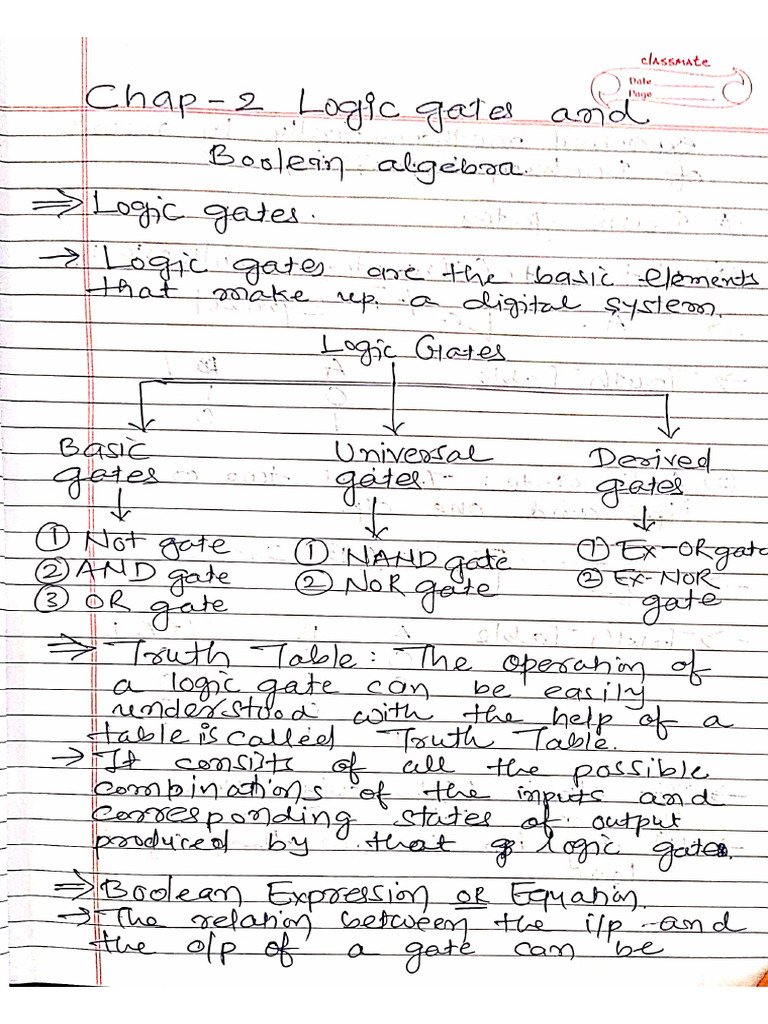 classmate
Date
Page
Chap-2 Logic gates and
Boolein algebra.
⇒ Logic gates.
→ Logic gates are the basic elements
that make up a digital system.
Logic Gates
Basic gates
Universal gates.
Derived gates
① Not gate
② AND gate
③ OR gate
① NAND gate
② NOR gate
① Ex-OR gate
② Ex-NOR gate
⇒ Truth Table: The operation of
a logic gate can be easily
understood with the help of a
table is called Truth Table.
→ It consists of all the possible
combinations of the inputs and
corresponding states of output
produced by that logic gate.
⇒ Boolean Expression OR Equation.
→ The relation between the i/p and
the o/p of a gate can be